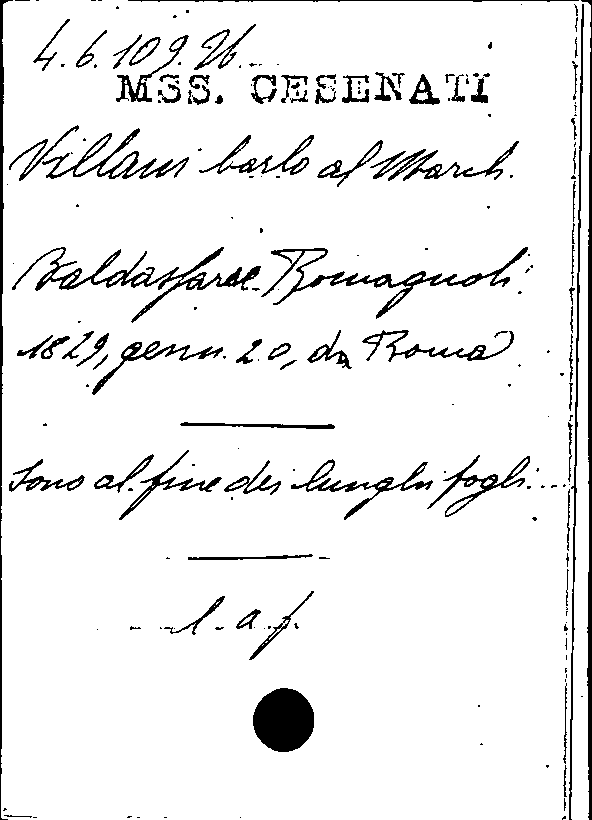 4.6.109.26
MSS. CESENATI
Villani Carlo al March.
Baldassarre Romagnoli
1829, genn. 20, da Roma
Sono al fine dei lunghi fogli.
l. a. f.